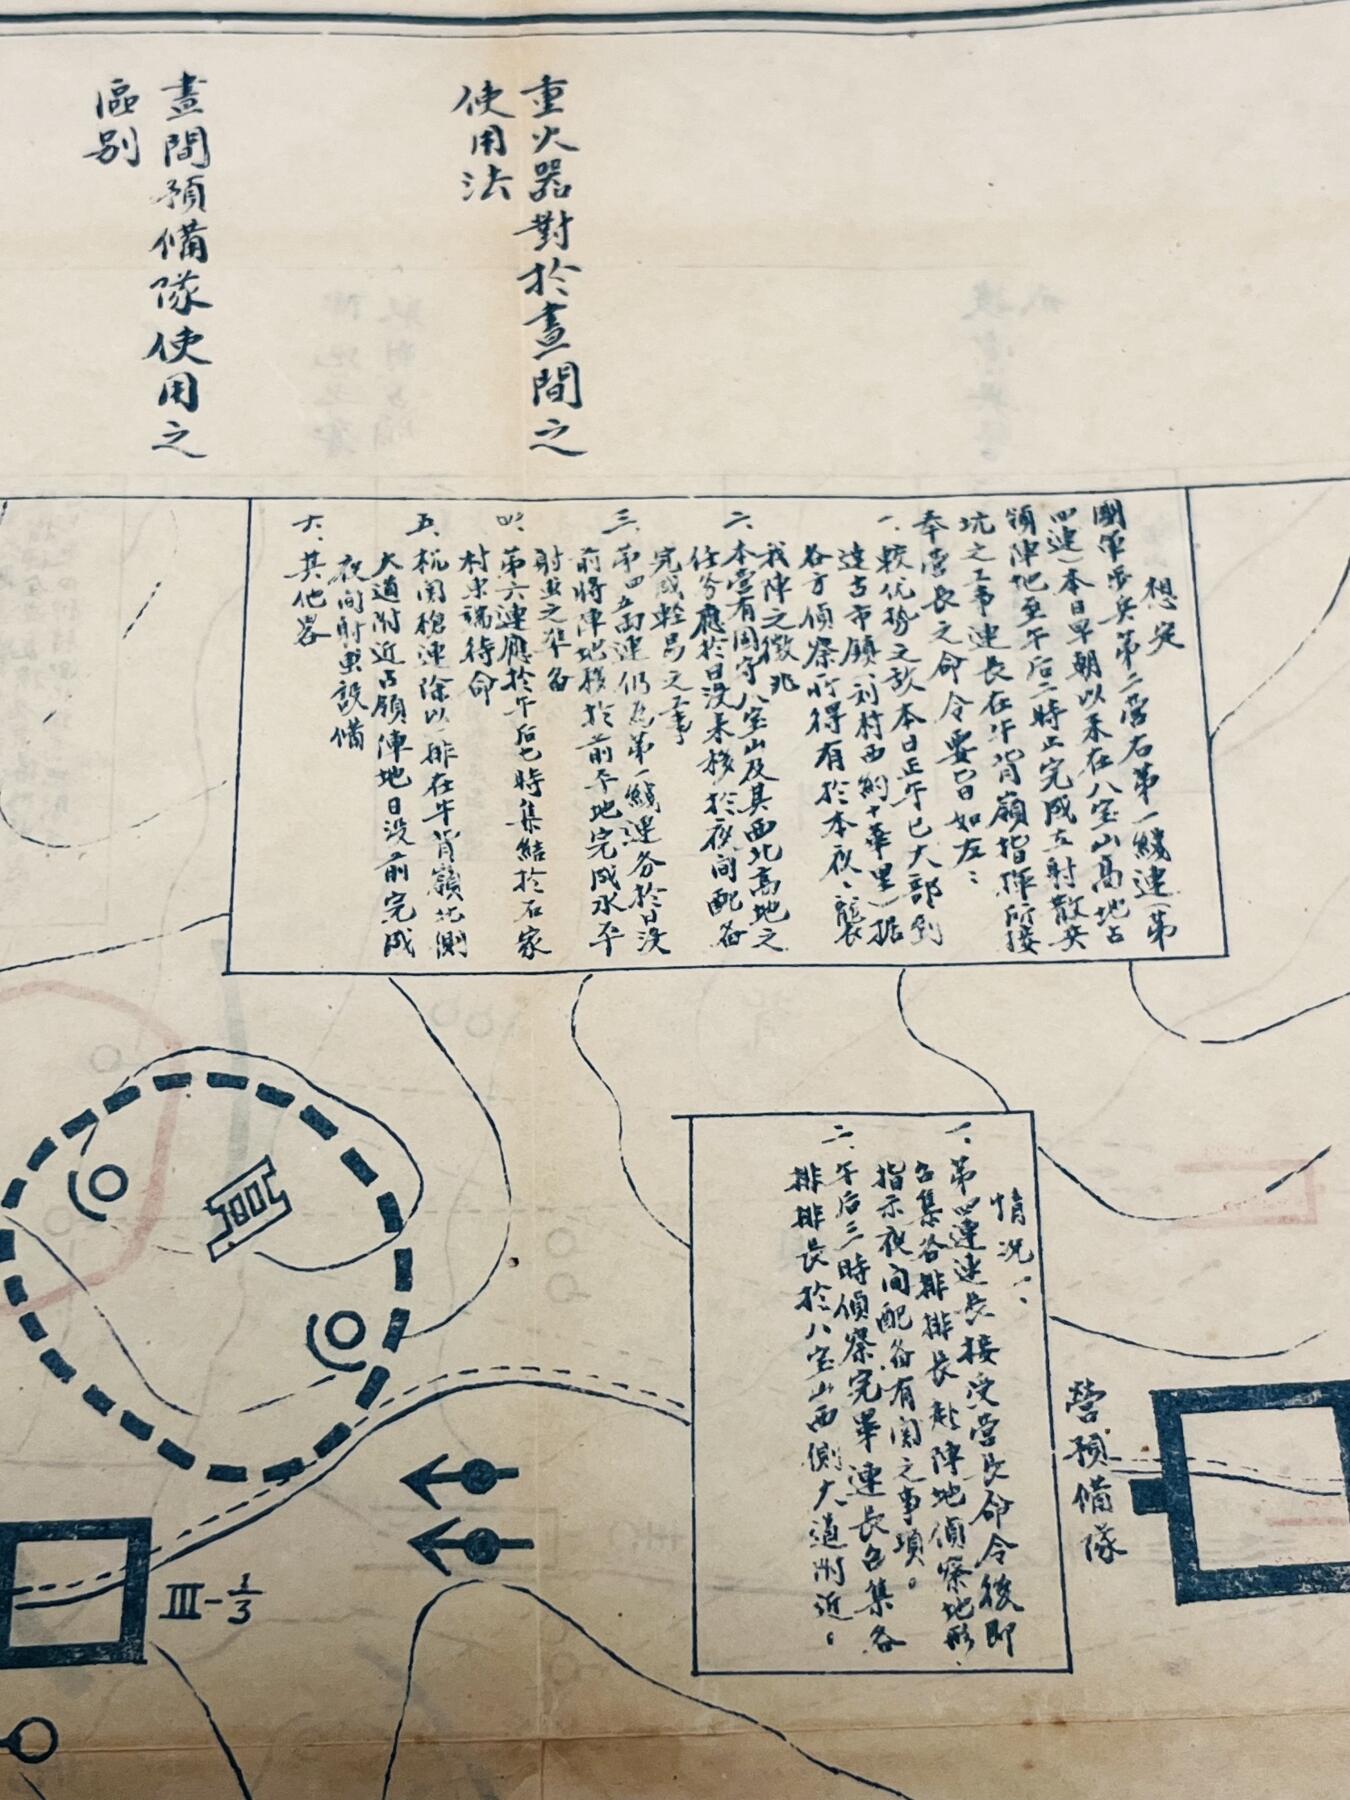 重火器對於晝間之
使用法
晝間預備隊使用之
區別
想定
國軍步兵第二營右第一綫連(第
四連)本日早朝以来在八宝山高地占
領陣地至午后二時止完成立射散兵
坑之工事連長在牛背嶺指揮所接
奉營長之命令要旨如左：
一、較优势之敌本日正午已大部到
達古市鎮(刘村西約十華里)据
各方偵察所得有於本夜、襲
我陣之徵兆
二、本營有固守八宝山及其西北高地之
任务應於日没未移於夜间配备
完成輕易之工事
三、第四五両連仍为第一綫連务於日没
前将陣地移於前平地完成水平
射击之準备
四、第六連應於午后七時集結於石家
村東端待命
五、机関槍連除以一排在牛背嶺北側
大道附近占領陣地日没前完成
夜间射击設備
六、其他畧
情况一、
一、第四連連長接受營長命令後即
召集各排排長赴陣地偵察地形、
指示夜间配备有関之事項。
二、午后三時偵察完畢連長召集各
排排長於八宝山西側大道附近。
營預備隊
III-1/3